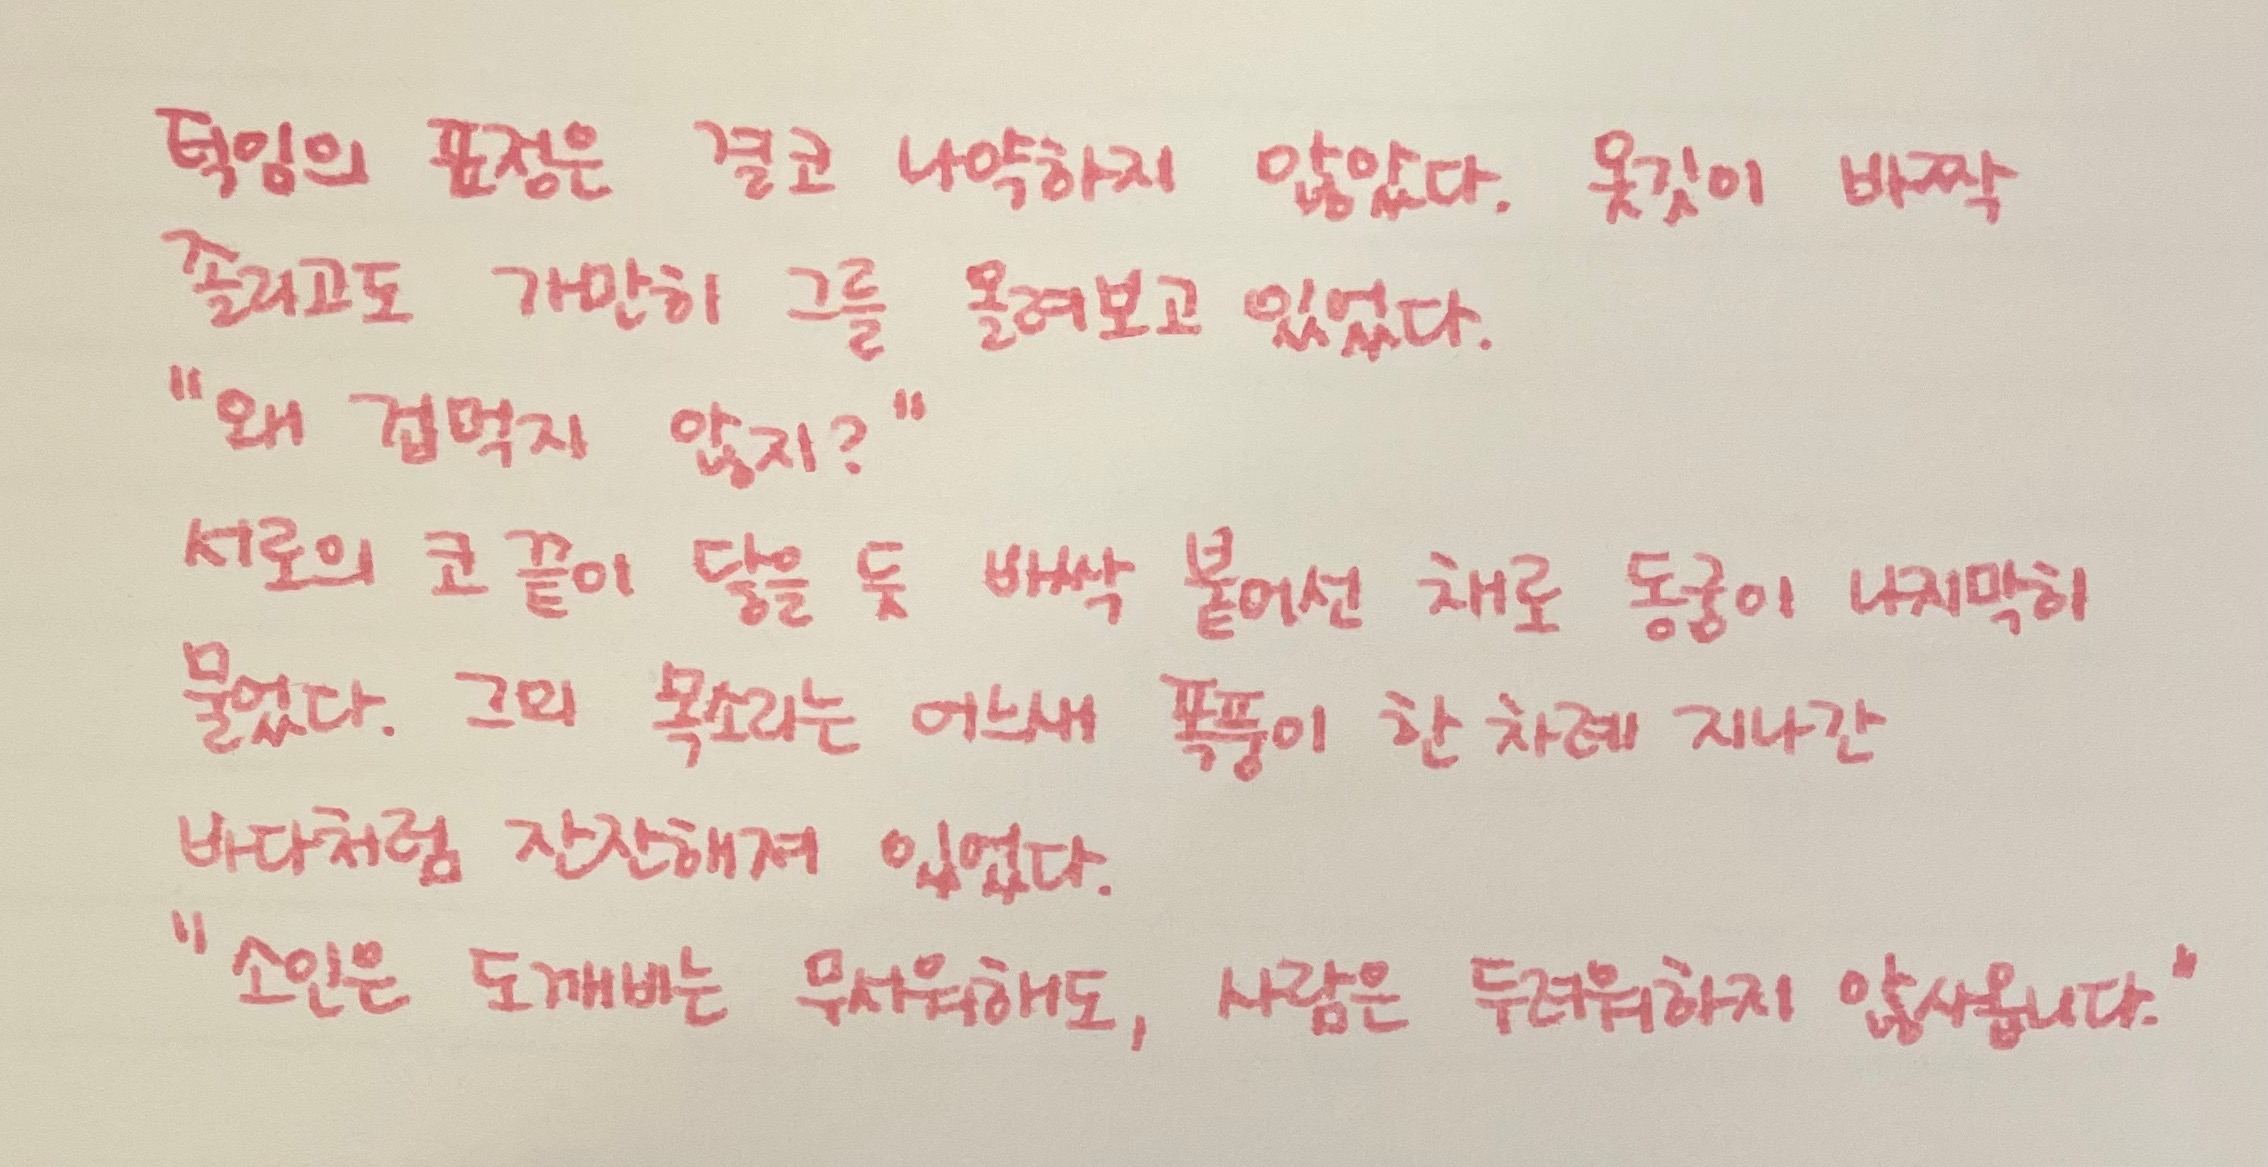 덕임의 표정은 결코 나약하지 않았다. 옷깃이 바짝
졸리고도 가만히 그를 올려보고 있었다.
"왜 겁먹지 않지?"
서로의 코 끝이 닿을 듯 바싹 붙어선 채로 동궁이 나지막히
물었다. 그의 목소리는 어느새 폭풍이 한 차례 지나간
바다처럼 잔잔해져 있었다.
"소인은 도깨비는 무서워해도, 사람은 두려워하지 않사옵니다."